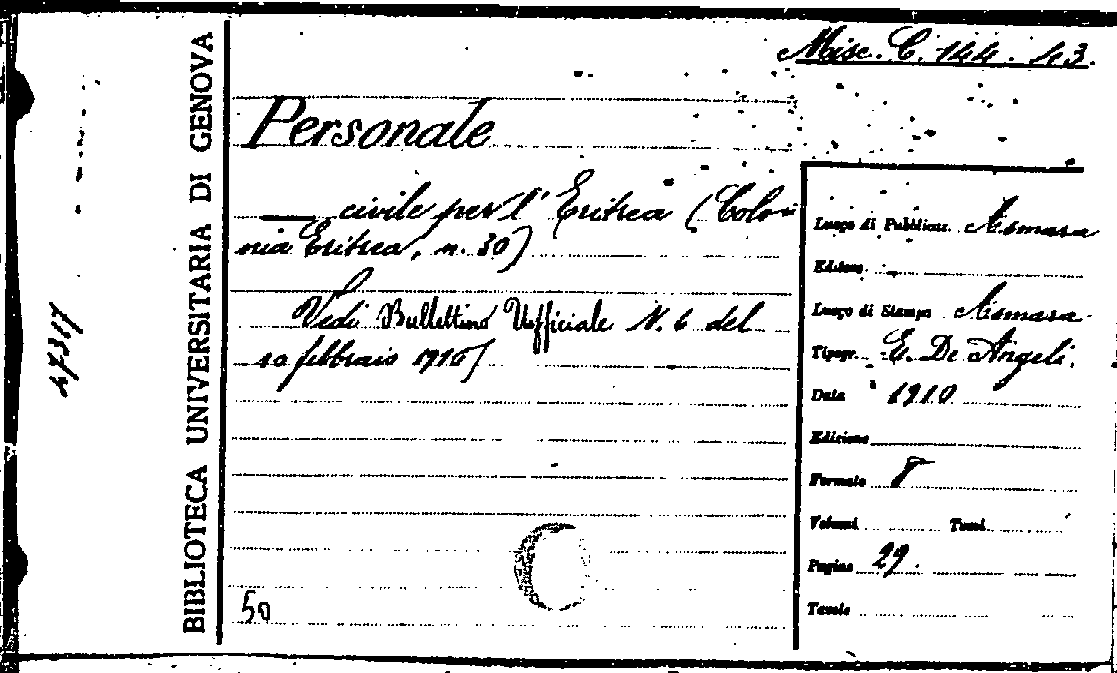 Misc. C. 144. 43.
BIBLIOTECA UNIVERSITARIA DI GENOVA
Personale
—— civile per l' Eritrea (Colo-
nia Eritrea, n. 30)
Vedi Bullettino Ufficiale N. 6 del
10 febbraio 1910)
50
Luogo di Pubblicaz. Asmara
Editore
Luogo di Stampa Asmara
Tipogr. E. De Angeli.
Data 1910
Edizione
Formato 8°
Volumi Tomi
Pagine 29.
Tavole